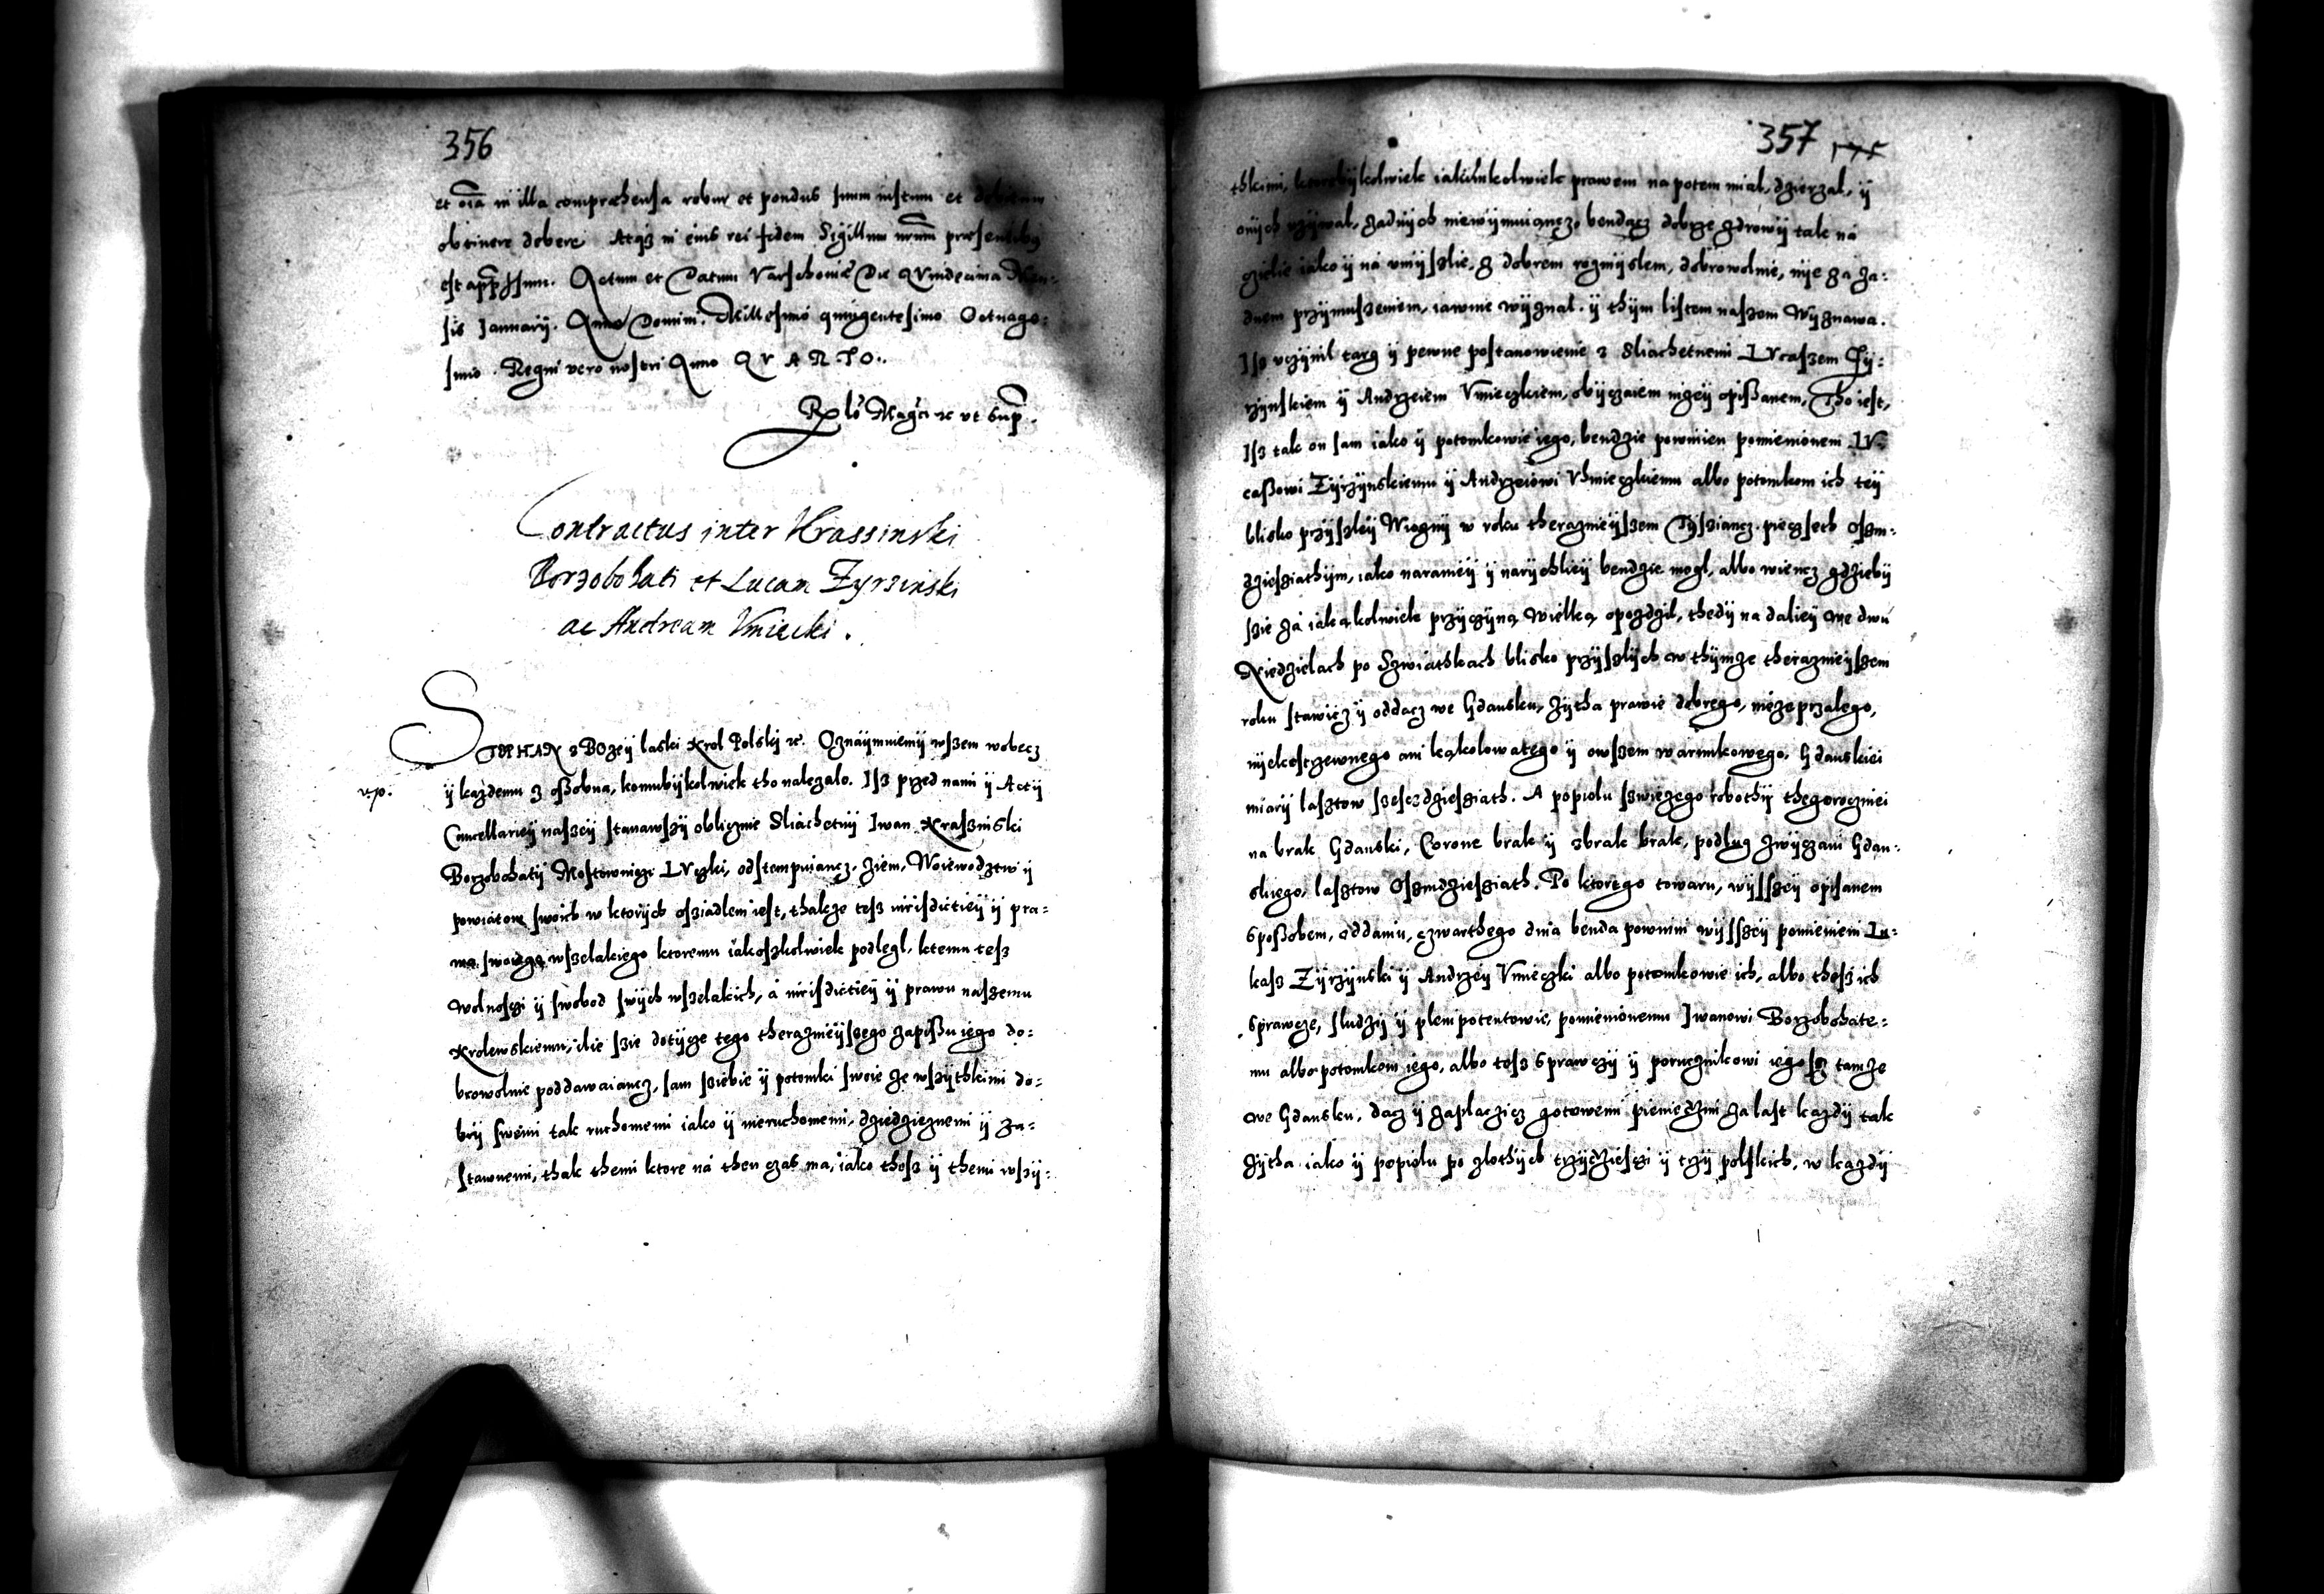 356
et oia in illa compræhensa robur et pondus suum iustum et debitum
obtinere debere Atqz in eius rei fidem Sigillum nrum præsentibus
est appssum. Actum et Datum Varschoviæ Die Quindecima Men:
sis Januarÿ. Anno Domini. Millesimo quingentesimo Octuage:
simo. Regni vero nostri Anno QVARTO..
Rx lò Mag̃ci etc ut sup.
Contractus inter Krassinski
Borzobohati et Lucam Zyrzinski
ac Andream Vniecki.
STEPHAN z Bożeÿ laski Krol Polskj etc. Oznaÿmuiemÿ wszem wobecz
ÿ kazdemu z osobna, komubÿkolwiek tho nalezalo. Isz przed nami ÿ Actÿ
Cancellarieÿ naszeÿ stanawszÿ oblicznie Sliachetnÿ Iwan Kraszinski
Borzobohatÿ Mostowniczi LVczki, odstempuiancz, ziem, Woiewodztw ÿ
powiatow swoich w ktorÿch osziadlem iest, thakze tesz iurisdictieÿ ÿ pra=
wa swoiego wszelakiego ktoremu iakoszkolwiek podlegl, ktemu tesz
wolnosczi ÿ swobod swÿch wszelakich, á iurisdictieÿ ÿ prawu naszemu
Krolewskiemu, ilie szie dotÿcze tego theraznieÿszego zapissu iego do:
browolnie poddawaiancz, sam sziebie ÿ potomki swoie ze wszÿthkimi do:
brÿ swemi tak ruchomemi iako ÿ nieruchomemi, dziedzicznemi ÿ za=
stawnemi, thak themi ktore ná then czas ma, iako thosz ÿ themi wszÿ:
357
thkimi, ktorebÿkolwiek iakimkolwiek prawem na potem mial, dzierzal, ÿ
onÿch uzÿwal, zadnÿch niewÿimuiąncz, bendącz dobrze zdrowÿ tak ná
cziele iako ÿ ná vmÿslie, z dobrem rozmÿslem, dobrowolnie, nÿe za za:
dnem przÿmuszeniem, iawnie wÿznal. ÿ thÿm listem naszem Wÿznawa.
Isz vczÿnil targ ÿ pewne postanowienie z Sliachetnemi LVcaszem Zÿ:
rzÿnskiem ÿ Andrzeiem Vnieczkiem, obÿczaiem nizeÿ opissanem, Tho iest,
Isz tak on sam iako ÿ potomkowie iego, bendzie powinien pomienionem LV:
cassowi Zÿrzÿnskiemu ÿ Andrzeiowi Vhnieczkiemu albo potomkom ich teÿ
blisko przÿszleÿ Wiosnÿ w roku theraznieÿszem Tÿsziancz pieczseth Oszm:
dziesziathÿm, iako naranieÿ ÿ narÿchlieÿ bendzie mogl, albo wiencz gdziebÿ
szie zá iakąkolwiek przÿczÿną wielką opozdzil, thedÿ na dalieÿ we dwu
Niedzielach po Szwiathkach blisko przÿszlÿch w thÿmze theraznieÿszem
roku stawicz ÿ oddacz we Gdansku, zÿtha prawie dobrego, niezeprzalego,
nÿekostrzewnego ani kąkolowatego ÿ owszem warunkowego. Gdanskiei
miarÿ lasztow szesczdziesziath. A popiolu szwiezego robothÿ thegoroczniei
na brak Gdanski, Corone brak ÿ zbrak brak, podlug zwÿczaiu Gdan:
skiego, lasztow Oszmdziesziath. Po ktorego towaru, wÿsszeÿ opisanem
sposobem, oddaniu, czwarthego dnia benda powinni wÿsszeÿ pomienieni Lu:
kasz Zÿrzÿnski ÿ Andrzeÿ Vnieczki albo potomkowie ich, albo thosz ich
sprawcze, sludzÿ ÿ plenipotentowie, pomienionemu Iwanowi Borzobohate:
mu albo potomkom iego, albo tesz sprawczÿ ÿ porucznikowi iego tamze
we Gdansku, dacz ÿ zaplaczicz gotowemi pieniedzmi za last kazdÿ tak
zÿtha iako ÿ popiolu po zlothÿch trzÿdziesczi ÿ trzÿ polskich, w kazdÿ